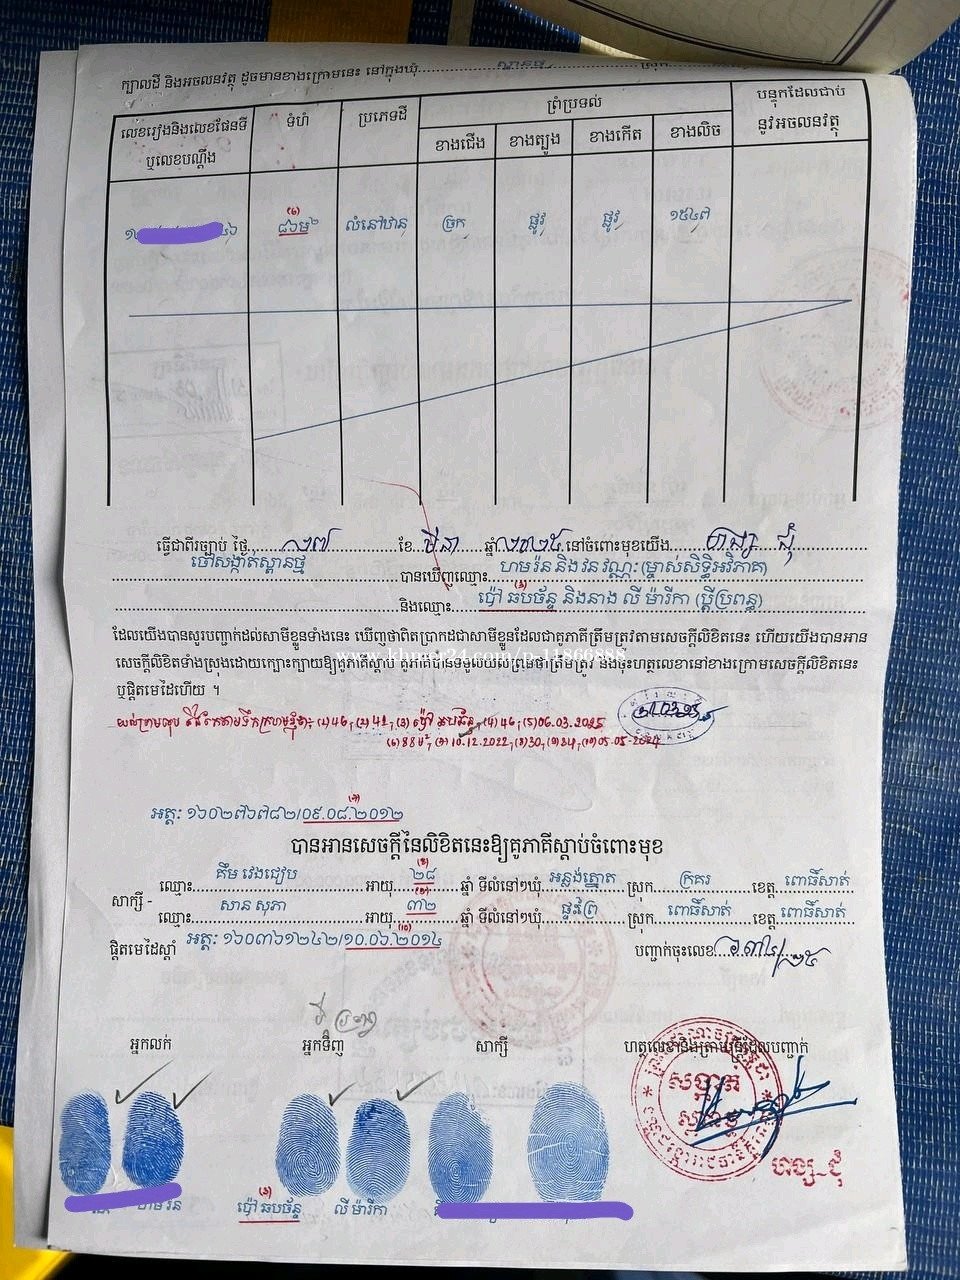 ក្បាលដី និងអចលនវត្ថុ ដូចមានខាងក្រោមនេះ នៅក្នុងឃុំ
លេខរៀងនិងលេខផែនទី ឬលេខបណ្ដឹង
ទំហំ
ប្រភេទដី
ព្រំប្រទល់
ខាងជើង ខាងត្បូង ខាងកើត ខាងលិច
បន្ទុកដែលជាប់ នូវអចលនវត្ថុ
(6) ៨៦ម២ លំនៅឋាន ច្រក ផ្លូវ ផ្លូវ ១៥៤៧
ធ្វើជាពីរច្បាប់ ថ្ងៃ ២៧ ខែ មីនា ឆ្នាំ ២០២៥ នៅចំពោះមុខយើង ហង្ស ជុំ
ចៅសង្កាត់ស្ពានថ្មី បានឃើញឈ្មោះ ហមរ៉ន និង វន វណ្ណៈ (ម្ចាស់សិទ្ធិអវិភាគ)
និងឈ្មោះ ប៉ៅ ឆបច័ន្ទ និងនាង លី ម៉ារីកា (ប្តីប្រពន្ធ)
ដែលយើងបានសួរបញ្ជាក់ដល់សាមីខ្លួនទាំងនេះ ឃើញថាពិតប្រាកដជាសាមីខ្លួនដែលជាគូភាគីត្រឹមត្រូវតាមសេចក្ដីលិខិតនេះ ហើយយើងបានអាន
សេចក្ដីលិខិតទាំងស្រុងដោយក្បោះក្បាយឱ្យគូភាគីស្ដាប់ គូភាគីបានទទួលយល់ព្រមថាត្រឹមត្រូវ និងចុះហត្ថលេខានៅខាងក្រោមសេចក្ដីលិខិតនេះ
ឬផ្ដិតមេដៃហើយ ។
www.khmer24.com/p-11866888
(1) 46, (2) 42, (3) ប៉ៅ ឆបច័ន្ទ, (4) 46, (5) 06.03.2025
(6) 88ម², (7) 10.12.2022, (8) 30, (9) 84, (10) 05.05.2024
អត្តៈ ១៦០២៧៦៧៨២/០៩.០៨.២០១២
បានអានសេចក្ដីនៃលិខិតនេះឱ្យគូភាគីស្ដាប់ចំពោះមុខ
សាក្សី -
ឈ្មោះ គឹម វេងជៀប អាយុ ២៨ ឆ្នាំ ទីលំនៅ១ឃុំ អន្លង់ត្នោត ស្រុក ក្រគរ ខេត្ត ពោធិ៍សាត់
ឈ្មោះ សាន សុភា អាយុ ៣២ ឆ្នាំ ទីលំនៅ១ឃុំ ផ្ទះព្រៃ ស្រុក ពោធិ៍សាត់ ខេត្ត ពោធិ៍សាត់
ផ្ដិតមេដៃស្ដាំ អត្តៈ ១៦០៣៦១២៤២/១០.០៦.២០១៤ បញ្ជាក់ចុះលេខ
អ្នកលក់ អ្នកទិញ សាក្សី ហត្ថលេខានិងត្រាមន្ត្រីដែលបញ្ជាក់
សង្កាត់
ហង្ស_ជុំ
ហមរ៉ន (3) ប៉ៅ ឆបច័ន្ទ លី ម៉ារីកា